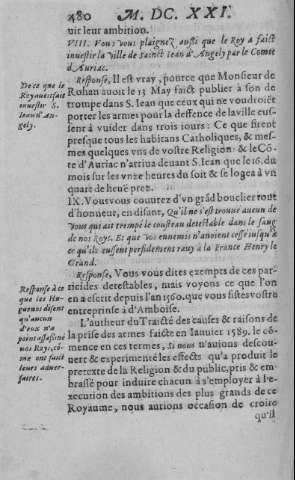 480 M. DC. XXI.
uir leur ambition.
VIII. Vous vous plaignez aussi que le Roy a faict
inuestir la ville de sainct Iean d'Angely par le Comte
d'Auriac.
De ce que le
Roy auoit faict
inuestir S.
Iean d'An-
gely.
Response, Il est vray, pource que Monsieur de
Rohan auoit le 13 May faict publier à son de
trompe dans S. Iean que ceux qui ne voudroiẽt
porter les armes pour la deffence de la ville eus-
sent à vuider dans trois iours: Ce que firent
presque tous les habitans Catholiques, & mes-
mes quelques vns de vostre Religion: & le Cõ-
te d'Auriac n'arriua deuant S. Iean que le 16. du
mois sur les vnze heures du soir & se logea à vn
quart de lieuë prez.
IX. Vous vous couurez d'vn grãd bouclier tout
d'honneur, en disant, Qu'il ne s'est trouué aucun de
vous qui ait trempé le cousteau detestable dans le sang
de nos Roys. Et que vos ennemis n'auoient cessé iusqu'à
ce qu'ils eussent perfidement rauy à la France Henry le
Grand.
Response à ce
que les Hu-
guenots disent
qu'aucun
d'eux n'a
point assassiné
nos Roys, cõ-
me ont faict
leurs aduer-
saires.
Response, Vous vous dites exempts de ces par-
ricides detestables, mais voyons ce que l'on
en a escrit depuis l'an 1560. que vous fistes vostre
entreprinse d'Amboise.
L'autheur du Traicté des causes & raisons de
la prise des armes faicte en Ianuier 1589. le com-
mence en ces termes, Si nous n'auions descou-
uert & experimenté les effects qu'a produit le
pretexte de la Religion & du public, pris & em-
brassé pour induire chacun à s'employer à l'e-
xecution des ambitions des plus grands de ce
Royaume, nous aurions occasion de croire
qu'il